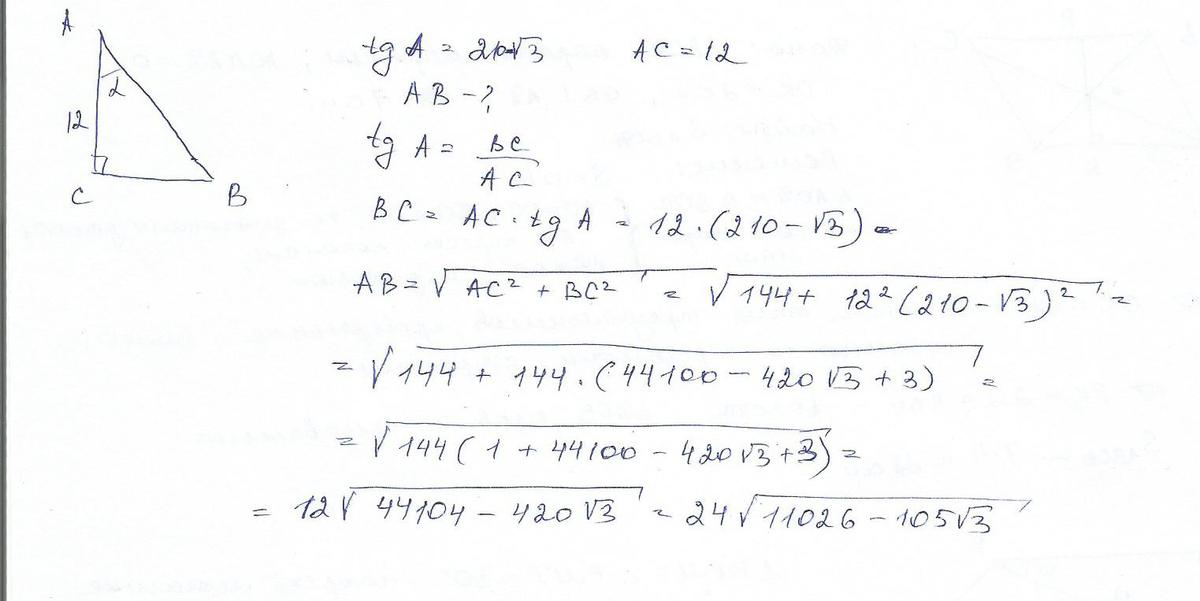 A
α
12
C
B
tg A = 210-√3 AC = 12
AB - ?
tg A = BC / AC
BC = AC · tg A = 12 · (210 - √3) =
AB = √(AC² + BC²) = √(144 + 12² (210 - √3)²) =
= √(144 + 144 · (44100 - 420√3 + 3)) =
= √(144 (1 + 44100 - 420√3 + 3)) =
= 12√(44104 - 420√3) = 24√(11026 - 105√3)